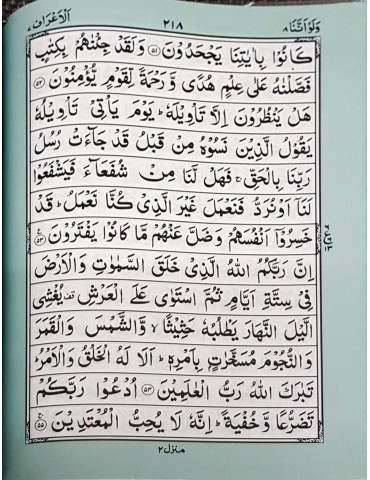 وَلَوْ اَنَّنَا ٨ ٢١٨ اَلْاَعْرَاف ٧
كَانُوْا بِاٰيٰتِنَا يَجْحَدُوْنَ ﴿٥١﴾ وَلَقَدْ جِئْنٰهُمْ بِكِتٰبٍ
فَصَّلْنٰهُ عَلٰى عِلْمٍ هُدًى وَّرَحْمَةً لِّقَوْمٍ يُّؤْمِنُوْنَ ﴿٥٢﴾
هَلْ يَنْظُرُوْنَ اِلَّا تَاْوِيْلَهٗ ؕ يَوْمَ يَاْتِيْ تَاْوِيْلُهٗ
يَقُوْلُ الَّذِيْنَ نَسُوْهُ مِنْ قَبْلُ قَدْ جَآءَتْ رُسُلُ
رَبِّنَا بِالْحَقِّ ۚ فَهَلْ لَّنَا مِنْ شُفَعَآءَ فَيَشْفَعُوْا
لَنَآ اَوْ نُرَدُّ فَنَعْمَلَ غَيْرَ الَّذِيْ كُنَّا نَعْمَلُ ؕ قَدْ
خَسِرُوْٓا اَنْفُسَهُمْ وَضَلَّ عَنْهُمْ مَّا كَانُوْا يَفْتَرُوْنَ ﴿٥٣﴾
اِنَّ رَبَّكُمُ اللّٰهُ الَّذِيْ خَلَقَ السَّمٰوٰتِ وَالْاَرْضَ
فِيْ سِتَّةِ اَيَّامٍ ثُمَّ اسْتَوٰى عَلَى الْعَرْشِ قف يُغْشِي
الَّيْلَ النَّهَارَ يَطْلُبُهٗ حَثِيْثًا ۙ وَّالشَّمْسَ وَالْقَمَرَ
وَالنُّجُوْمَ مُسَخَّرٰتٍۭ بِاَمْرِهٖ ؕ اَلَا لَهُ الْخَلْقُ وَالْاَمْرُ ؕ
تَبٰرَكَ اللّٰهُ رَبُّ الْعٰلَمِيْنَ ﴿٥٤﴾ اُدْعُوْا رَبَّكُمْ
تَضَرُّعًا وَّخُفْيَةً ؕ اِنَّهٗ لَا يُحِبُّ الْمُعْتَدِيْنَ ﴿٥٥﴾
منزل ٢